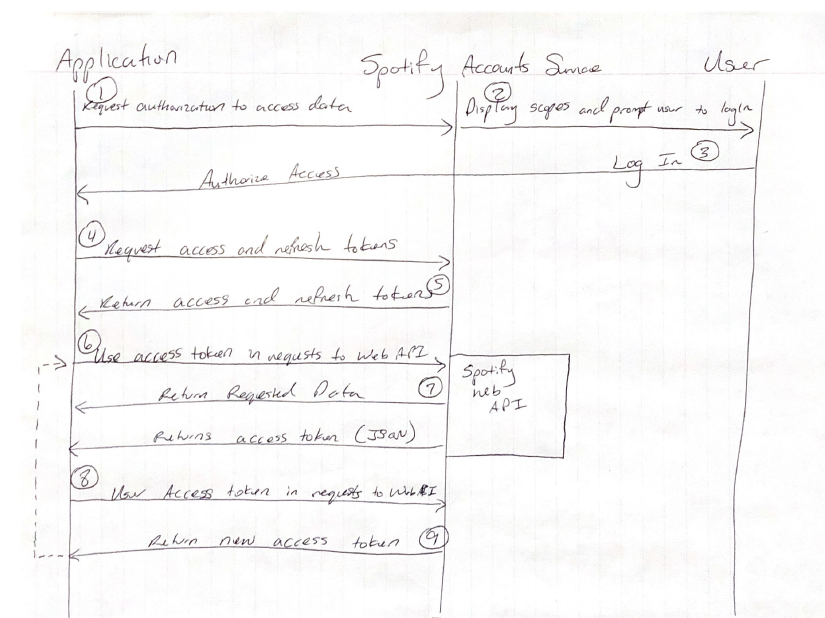 Application Spotify Accounts Service User
1
Request authorization to access data
2
Display scopes and prompt user to login
Log In 3
Authorize Access
4
Request access and refresh tokens
Return access and refresh tokens 5
6
Use access token in requests to Web API
Spotify
Web
API
Return Requested Data 7
Returns access token (JSON)
8
User Access token in requests to Web API
Return new access token 9